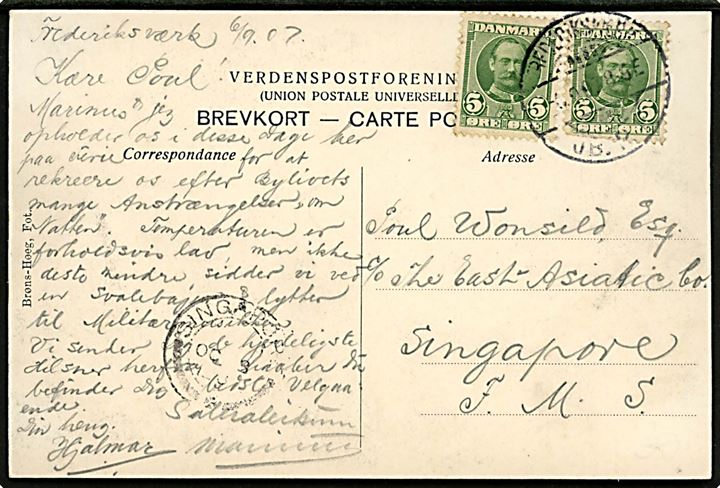 Frederiksværk 6/9. 07.
Kære Poul!
Marinus & jeg
opholder os i disse Dage her
paa for at
rekreere os efter Bylivets
mange Anstrængelser, "om
Natten". Temperaturen er
forholdsvis lav, men ikke
desto mindre sidder vi ved
en & lytter
til Militær
Vi sender de hjerteligste
Hilsner haaber Du
befinder Dig bedste Velgaa-
ende.
Din heng.
Hjalmar
VERDENSPOSTFORENIN
(UNION POSTALE UNIVERSELLE
BREVKORT — CARTE PO
Correspondance
Adresse
DANMARK
5 5
ØRE ØRE
DANMARK
5 5
ØRE ØRE
JB.
Poul Wonsild, Esq.
c/o The East-Asiatic Co.
Singapore
F. M. S.
SINGAPORE
Brøns-Hoeg, Fot.